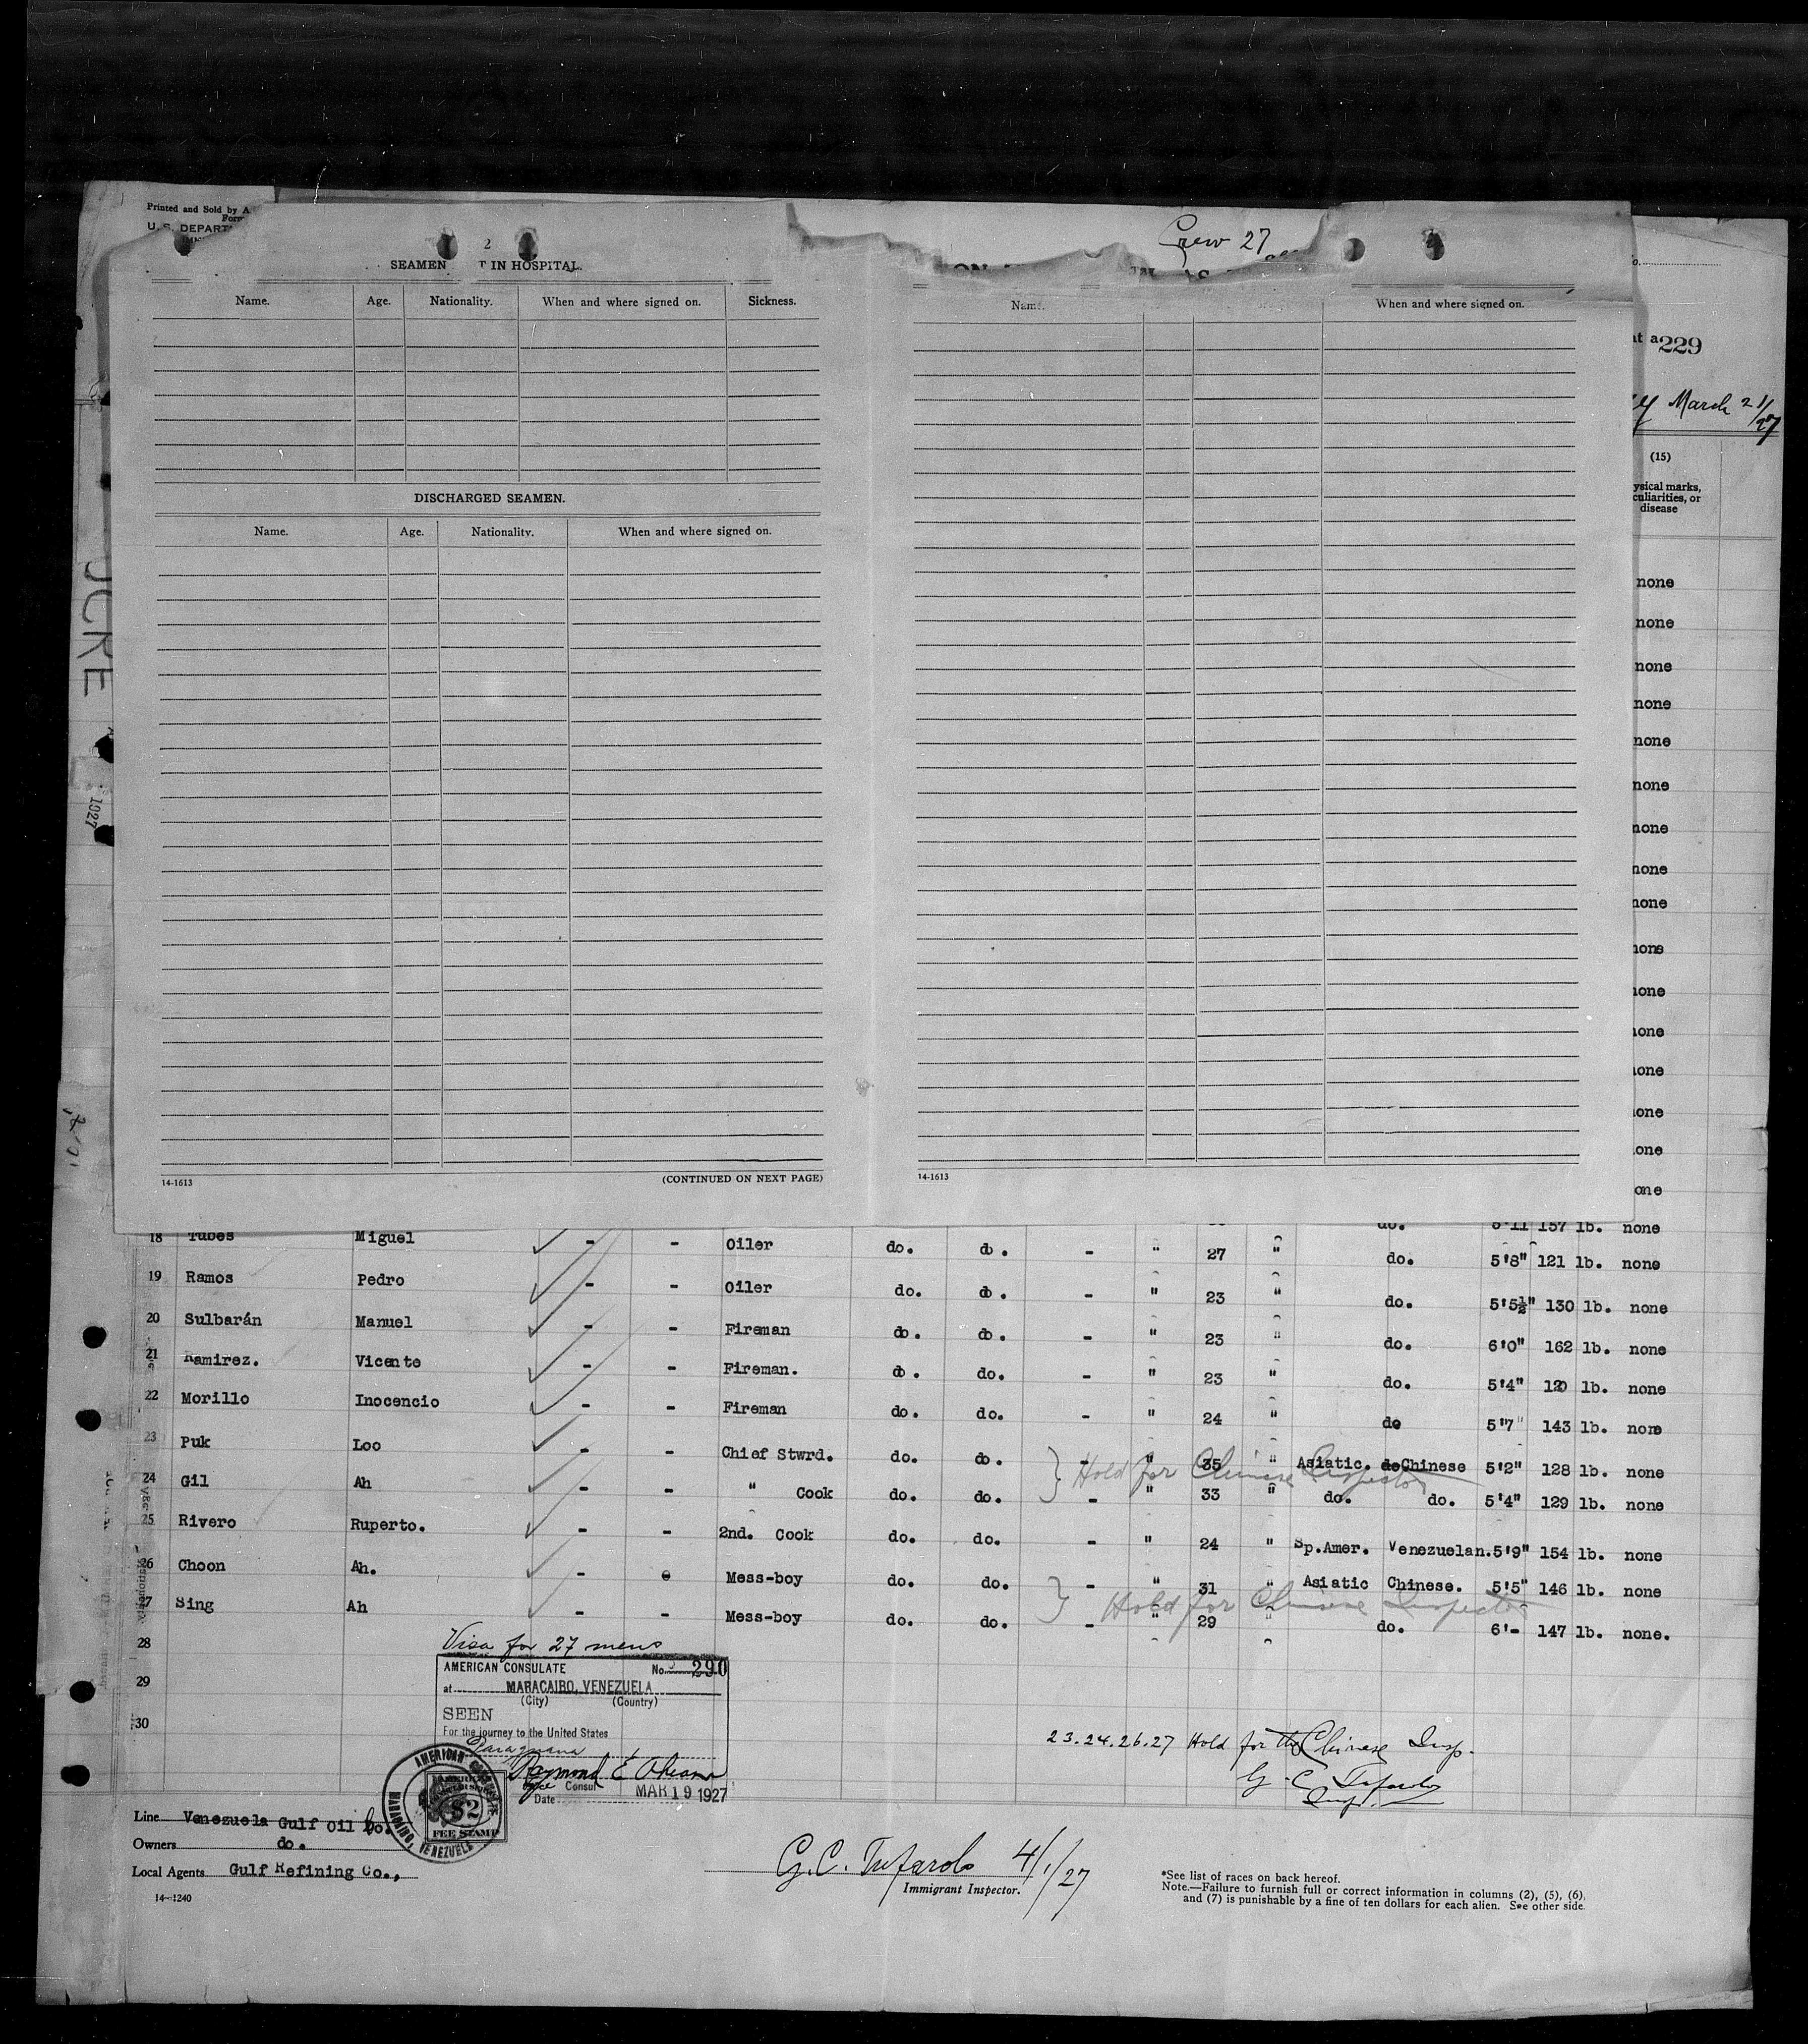 Printed and Sold by A.
Form
U. S. DEPART
2
Crew 27
SEAMEN T IN HOSPITAL.
Name. Age. Nationality. When and where signed on. Sickness.
Name. When and where signed on.
at a 229
March 21/27
(15)
ysical marks,
culiarities, or
disease
DISCHARGED SEAMEN.
Name. Age. Nationality. When and where signed on.
none
none
none
none
none
none
none
none
none
none
none
none
none
none
one
one
1927
14-1613 (CONTINUED ON NEXT PAGE)
14-1613
do. 5'11 157 lb. none
18 Tubes Miguel - - Oiler do. do. - " 27 " do. 5'8" 121 lb. none
19 Ramos Pedro - - Oiler do. do. - " 23 " do. 5'5½" 130 lb. none
20 Sulbarán Manuel - - Fireman do. do. - " 23 " do. 6'0" 162 lb. none
21 Ramirez. Vicente - - Fireman. do. do. - " 23 " do. 5'4" 120 lb. none
22 Morillo Inocencio - - Fireman do. do. - " 24 " do 5'7" 143 lb. none
23 Puk Loo - - Chief Stwrd. do. do. - " 35 " Asiatic. do Chinese 5'2" 128 lb. none
Hold for Chinese Inspector
24 Gil Ah - - " Cook do. do. - " 33 " do. do. 5'4" 129 lb. none
25 Rivero Ruperto. - - 2nd. Cook do. do. - " 24 " Sp.Amer. Venezuelan. 5'9" 154 lb. none
26 Choon Ah. - - Mess-boy do. do. - " 31 " Asiatic Chinese. 5'5" 146 lb. none
Hold for Chinese Inspector
27 Sing Ah - - Mess-boy do. do. - " 29 " do. 6'- 147 lb. none.
28
29
30
Visa for 27 mens
AMERICAN CONSULATE No. 290
at MARACAIBO, VENEZUELA
(City) (Country)
SEEN
For the journey to the United States
Paraguana
Raymond E
Vice Consul
Date MAR 19 1927
AMERICAN CONSULATE
MARACAIBO, VENEZUELA
$2
FEE STAMP
23.24.26.27 Hold for the Chinese Insp.
G. C. Tufarolo
Insp.
Line Venezuela Gulf Oil Co.
Owners do.
Local Agents Gulf Refining Co.,
14-1240
G. C. Tufarolo 4/1/27
Immigrant Inspector.
*See list of races on back hereof.
Note.—Failure to furnish full or correct information in columns (2), (5), (6),
and (7) is punishable by a fine of ten dollars for each alien. See other side.